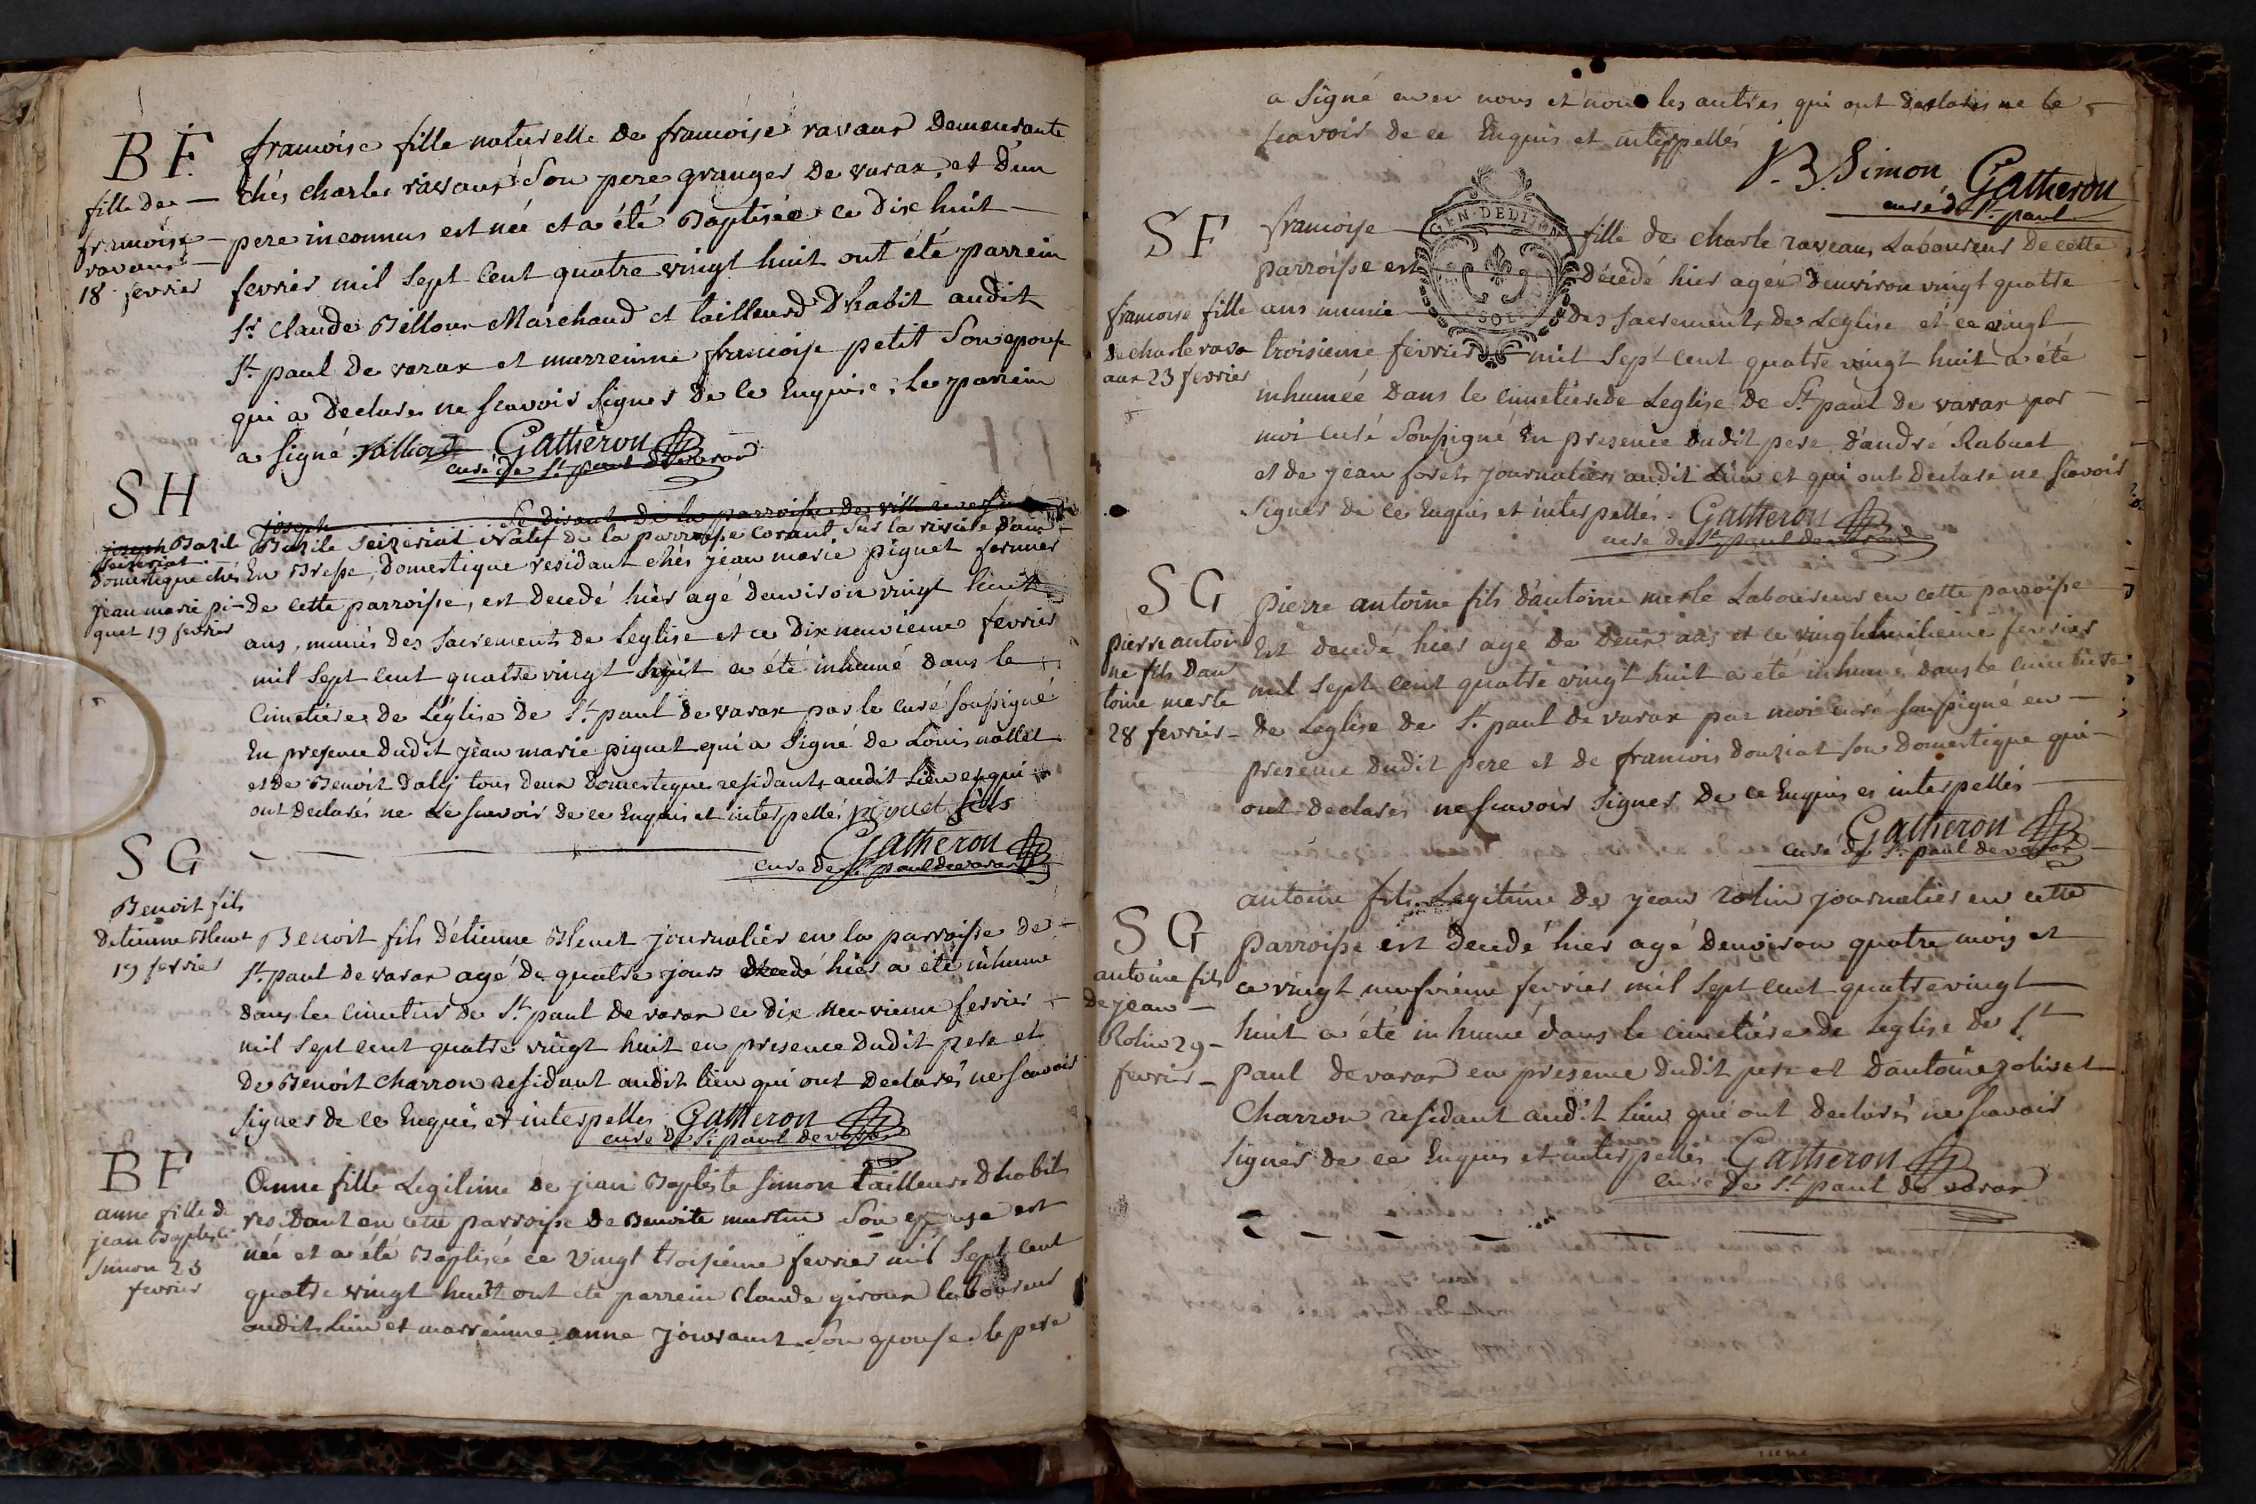 BF
fille de
francoise
ravaux
18 fevrier
francoise fille naturelle de francoise ravaux demeurante
chés charles ravaux Son pere granger de varax, et d'un
pere inconnus est née et a été Baptisée ce dix huit
fevrier mil sept cent quatre vingt huit ont été parrein
Sr claude Billoux Marchand et tailleurd D'habit audit
St paul de varax et marreinne francoise petit Son epouse
qui a declarer ne scavoir signer de ce Enquise, le parrein
a signé Gatheron
curé de St paul de varax
SH
Bazile
Seizeriat
domestique chés
jean marie pi-
quet 19 fevrier
joseph se disant de la parroisse de villereverse
Bazile Seizeriat Natif de la parroisse Corant Sur la riviere d'ain
En Bresse, domestique residant chés jean marie piquet fermier
de cette parroisse, est decedé hier agé denviron vingt huit
ans, munis des sacrements de Leglise et ce dix neuvieme fevrier
mil sept cent quatre vingt huit a été inhumé dans le
Cimetiere de Léglise de St paul de varax par le curé soussigné
En presence dudit jean marie piquet qui a signé de Louis nallet
et de Benoit dally tous deux domestiques residants audit Lieu et qui
ont declarés ne Le scavoir de ce Enquis et interpellés piquet fils
Gatheron
curé de St paul de varax
SG
Benoit fils
détienne Blenet
19 fevrier
Benoit fils détienne Blenet journalier en la parroisse de
St paul de varax agé de quatre jours decedé hier a été inhumé
dans le cimetier de St paul de varax ce dix neuvieme fevrier
mil sept cent quatre vingt huit en presence dudit pere et
de Benoit Charron residant audit lieu qui ont declarés ne scavoir
signer de ce Enquis et interpelles Gatheron
curé de St paul de varax
BF
anne fille de
jean Baptiste
Simon 23
fevrier
Anne fille Legitime de jean Baptiste Simon tailleurs d habits
residant en cette parroisse de Benoite martin Son epouse est
née et a été Baptisée ce vingt troisieme fevrier mil sept cent
quatre vingt huit ont été parrein Claude giroux laboureur
audit lieu et marreinne anne joursant Son epouse le pere
a signé avec nous et non les autres qui ont declarés ne le
scavoir de ce Enquis et interpellés
J. B. Simon Gatheron
curé de St paul
GEN·DEDIJON
SOLS
SF
francoise fille
de charle rava
aux 23 fevrier
francoise fille de charle raveaux Laboureur de cette
parroisse est décédé hier agée denviron vingt quatre
ans munie des sacrements de Leglise et ce vingt
troisieme fevrier mil sept cent quatre vingt huit a été
inhumée dans le cimetiere de Leglise de St paul de varax par
moi curé soussigné En presence dudit pere d'andré Rabuet
et de jean foret journaliers audit Lieu et qui ont declaré ne scavoir
signer de ce Enquis et interpellés. Gatheron
curé de St paul de varax
SG
pierre antoi
ne fils dan
toine merle
28 fevrier
pierre antoine fils d'antoine merle Laboureur en cette parroisse
Est decedé hier agé de deux ans et ce vingt huitieme fevrier
mil sept cent quatre vingt huit a été inhumé dans le cimetiere
de Leglise de St paul de varax par moi curé soussigné en
presence dudit pere et de francois douziat son domestique qui
ont declarés ne scavoir signer de ce Enquis et interpellés
Gatheron
curé de St paul de varax
SG
antoine fils
de jean
Rolin 29
fevrier
antoine fils Legitime de jean rolin journalier en cette
Parroisse est decedé hier agé denviron quatre mois et
ce vingt neufvieme fevrier mil sept cent quatre vingt
huit a été inhumé dans le cimetiere de leglise de St
Paul de varax en presence dudit pere et d'antoine
Charron residant audit lieu qui ont declarés ne scavoir
signer de ce Enquis et interpellés Gatheron
curé de St paul de varax